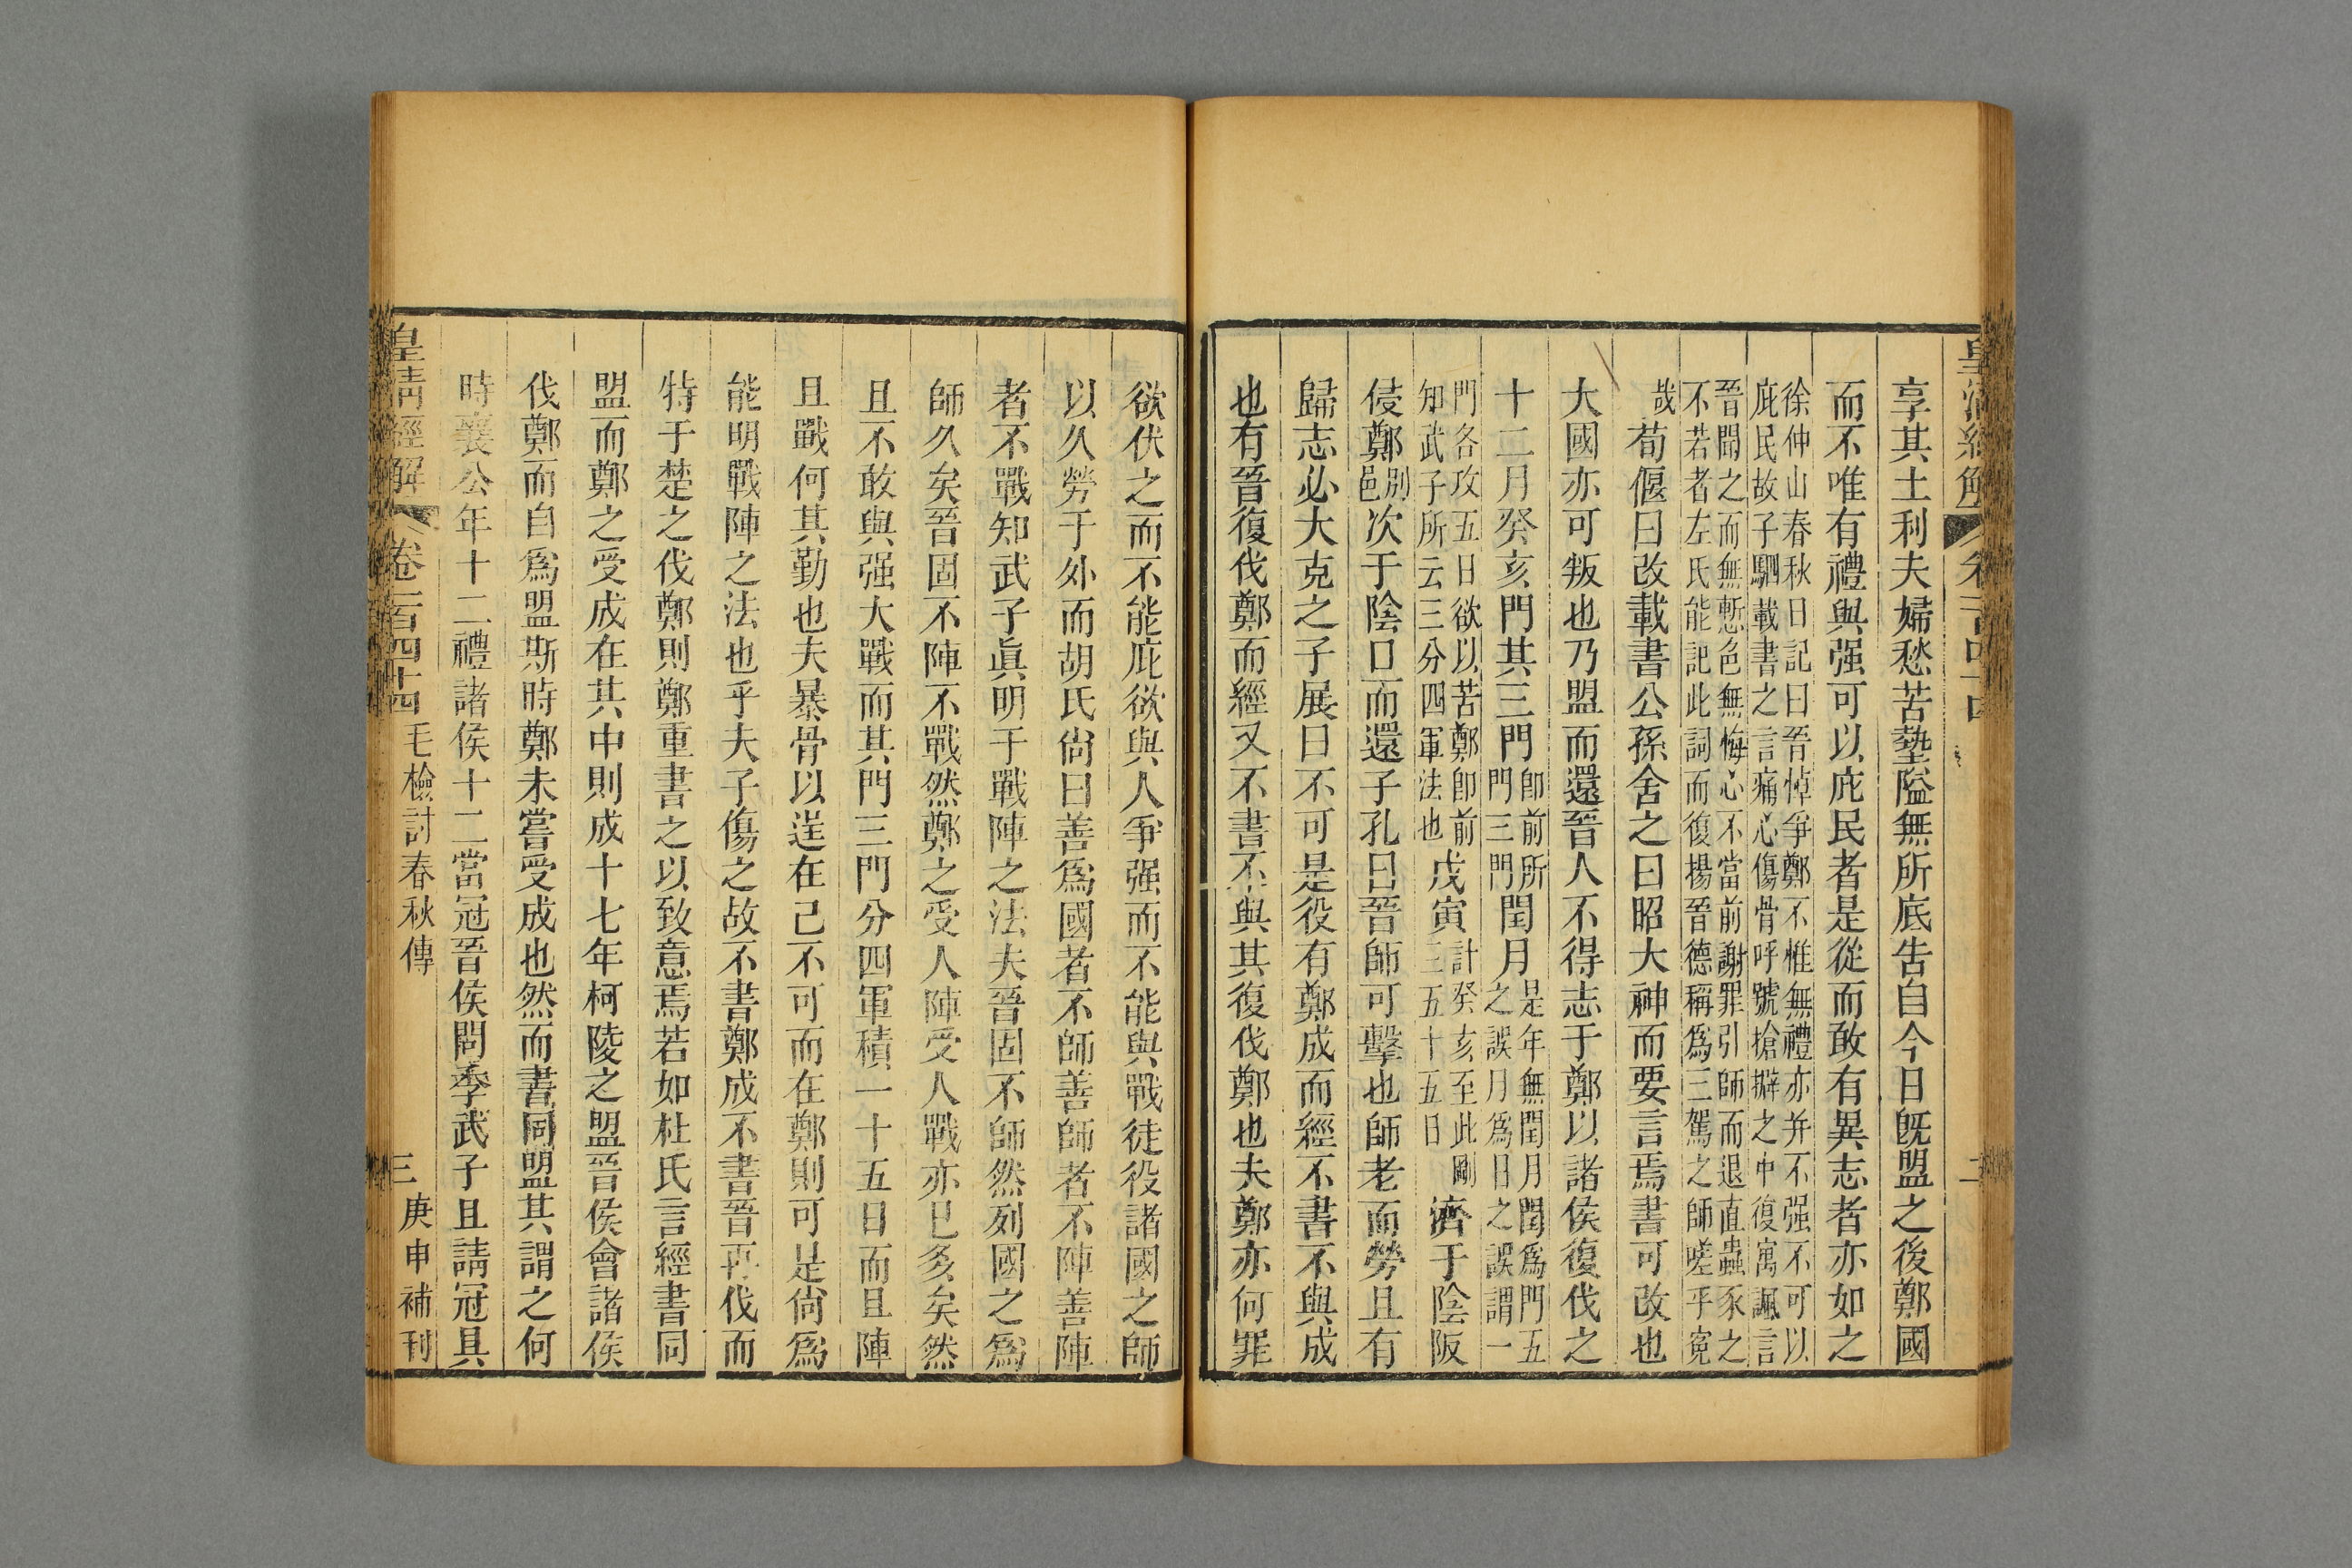 皇清經解
卷一百四十四
二
享其土利夫婦愁苦墊隘無所底告自今日旣盟之後鄭國
而不唯有禮與强可以庇民者是從而敢有異志者亦如之
徐仲山春秋日記曰晉悼爭鄭不惟無禮亦并不强不可以
庇民故子駟載書之言痛心傷骨呼號搶擗之中復寓諷言
晉聞之而無慙色無悔心不當前謝罪引師而退直蟲豕之
不若者左氏能記此詞而復揚晉德稱爲三駕之師嗟乎寃
哉荀偃曰改載書公孫舍之曰昭大神而要言焉書可改也
大國亦可叛也乃盟而還晉人不得志于鄭以諸侯復伐之
十二月癸亥門其三門卽前所門三門閏月是年無閏月閏爲門五之誤月爲日之誤謂一
門各攻五日欲以苦鄭卽前知武子所云三分四軍法也戊寅計癸亥至此剛三五十五日濟于陰阪
侵鄭別邑次于陰口而還子孔曰晉師可擊也師老而勞且有
歸志必大克之子展曰不可是役有鄭成而經不書不與成
也有晉復伐鄭而經又不書不與其復伐鄭也夫鄭亦何罪
欲伏之而不能庇欲與人爭强而不能與戰徒役諸國之師
以久勞于外而胡氏尙曰善爲國者不師善師者不陣善陣
者不戰知武子眞明于戰陣之法夫晉固不師然列國之爲
師久矣晉固不陣不戰然鄭之受人陣受人戰亦已多矣然
且不敢與强大戰而其門三門分四軍積一十五日而且陣
且戰何其勤也夫暴骨以逞在己不可而在鄭則可是尙爲
能明戰陣之法也乎夫子傷之故不書鄭成不書晉再伐而
特于楚之伐鄭則鄭重書之以致意焉若如杜氏言經書同
盟而鄭之受成在其中則成十七年柯陵之盟晉侯會諸侯
伐鄭而自爲盟斯時鄭未嘗受成也然而書同盟其謂之何
時襄公年十二禮諸侯十二當冠晉侯問季武子且請冠具
皇清經解
卷一百四十四
毛檢討春秋傳
三
庚申補刊